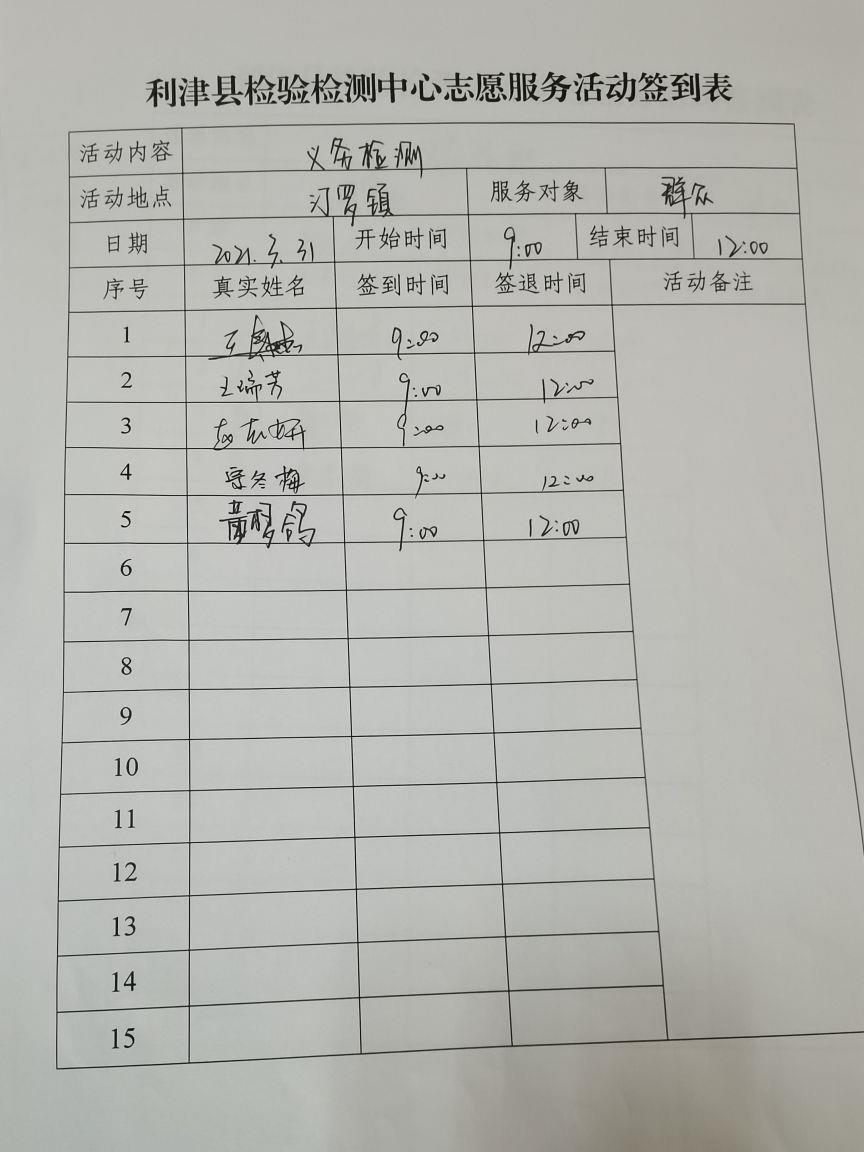 利津县检验检测中心志愿服务活动签到表
活动内容 义务检测
活动地点 汀罗镇 服务对象 群众
日期 2021.3.31 开始时间 9:00 结束时间 12:00
序号 真实姓名 签到时间 签退时间 活动备注
1 9:00 12:00
2 王瑞芳 9:00 12:00
3 9:00 12:00
4 冬梅 9:00 12:00
5 黄 鸽 9:00 12:00
6
7
8
9
10
11
12
13
14
15